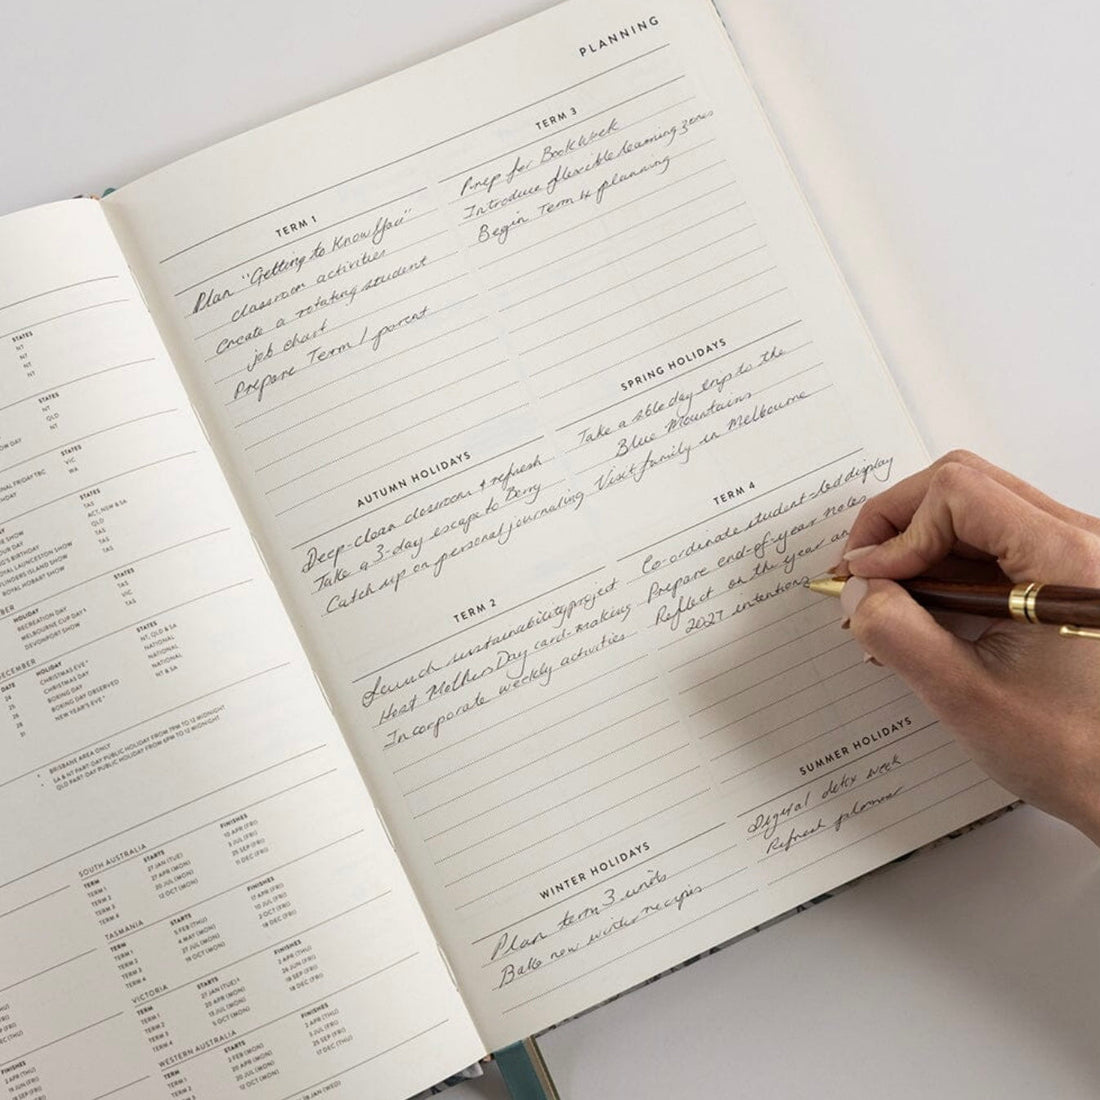 STATES
NT
NT
NT
NT
STATES
NT
QLD
NT
OW DAY
STATES
VIC
WA
ONAL FRIDAY TBC
STATES
TAS
ACT, NSW & SA
QLD
TAS
TAS
TAS
OUR DAY
ROYAL LAUNCESTON SHOW
FLINDERS ISLAND SHOW
ROYAL HOBART SHOW
HOLIDAY STATES
RECREATION DAY TAS
MELBOURNE CUP DAY* VIC
DEVONPORT SHOW TAS
DECEMBER
DATE HOLIDAY STATES
24 CHRISTMAS EVE* NT, QLD & SA
25 CHRISTMAS DAY NATIONAL
26 BOXING DAY NATIONAL
28 BOXING DAY OBSERVED NATIONAL
31 NEW YEAR'S EVE* NT & SA
* BRISBANE AREA ONLY
* SA & NT PART-DAY PUBLIC HOLIDAY FROM 7PM TO 12 MIDNIGHT
QLD PART-DAY PUBLIC HOLIDAY FROM 6PM TO 12 MIDNIGHT
SOUTH AUSTRALIA
TERM STARTS FINISHES
TERM 1 27 JAN (TUE) 10 APR (FRI)
TERM 2 27 APR (MON) 3 JUL (FRI)
TERM 3 20 JUL (MON) 25 SEP (FRI)
TERM 4 12 OCT (MON) 11 DEC (FRI)
TASMANIA
TERM STARTS FINISHES
TERM 1 5 FEB (THU) 17 APR (FRI)
TERM 2 4 MAY (MON) 10 JUL (FRI)
TERM 3 27 JUL (MON) 2 OCT (FRI)
TERM 4 19 OCT (MON) 18 DEC (FRI)
VICTORIA
TERM STARTS FINISHES
TERM 1 27 JAN (TUE) 2 APR (THU)
TERM 2 20 APR (MON) 26 JUN (FRI)
TERM 3 13 JUL (MON) 18 SEP (FRI)
TERM 4 5 OCT (MON) 18 DEC (FRI)
WESTERN AUSTRALIA
TERM STARTS FINISHES
TERM 1 2 FEB (MON) 2 APR (THU)
TERM 2 20 APR (MON) 3 JUL (FRI)
TERM 3 20 JUL (MON) 25 SEP (FRI)
TERM 4 12 OCT (MON) 17 DEC (THU)
FINISHES
2 APR (THU)
PLANNING
TERM 1
Plan "Getting to Know You"
classroom activities
Create a rotating student
job chart
Prepare Term 1 parent
AUTUMN HOLIDAYS
Deep-clean classroom + refresh
Take a 3-day escape to Berry
Catch up on personal journaling
TERM 2
Launch sustainability project
Host Mothers Day card-making
Incorporate weekly activities
WINTER HOLIDAYS
Plan term 3 units
Bake new winter recipes
TERM 3
Prep for Book Week
Introduce flexible learning zones
Begin Term 4 planning
SPRING HOLIDAYS
Take a day trip to the
Blue Mountains
Visit family in Melbourne
TERM 4
Co-ordinate student-led display
Prepare end-of-year notes
Reflect on the year an
2027 intentions
SUMMER HOLIDAYS
Digital detox week
Refresh planner